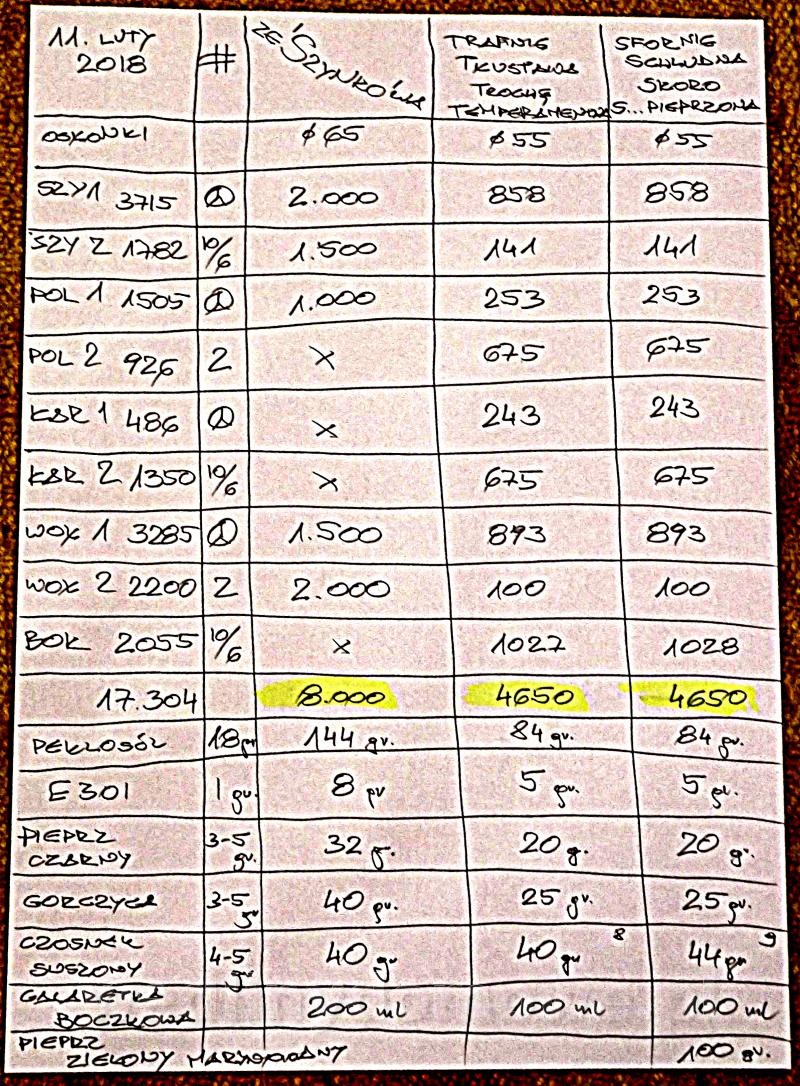 11. LUTY 2018 # ZE SZYNKÓWA TRAFNIE TŁUSTAWA TROCHĘ TEMPERAMENOWA SFORNIE SCHLUDNA SKORO S...PIEPRZONA
OSŁONKI ø65 ø55 ø55
SZY1 3715 2.000 858 858
SZY 2 1782 10/6 1.500 141 141
POL 1 1505 1.000 253 253
POL 2 926 2 x 675 675
KAR 1 486 x 243 243
KAR 2 1350 10/6 x 675 675
WOŁ 1 3285 1.500 893 893
WOŁ 2 2200 2 2.000 100 100
BOK 2055 10/6 x 1027 1028
17.304 8.000 4650 4650
PEKLOSÓL 18gr 144 gr. 84 gr. 84 gr.
E301 1 gr. 8 gr 5 gr. 5 gr.
PIEPRZ CZARNY 3-5 gr. 32 g. 20 g. 20 g.
GORCZYCA 3-5 gr 40 gr. 25 gr. 25 gr.
CZOSNEK SUSZONY 4-5 gr 40 gr 40 gr 8 44 gr 9
GALARETKA BOCZKOWA 200 ml 100 ml 100 ml
PIEPRZ ZIELONY MARYNOWANY 100 gr.